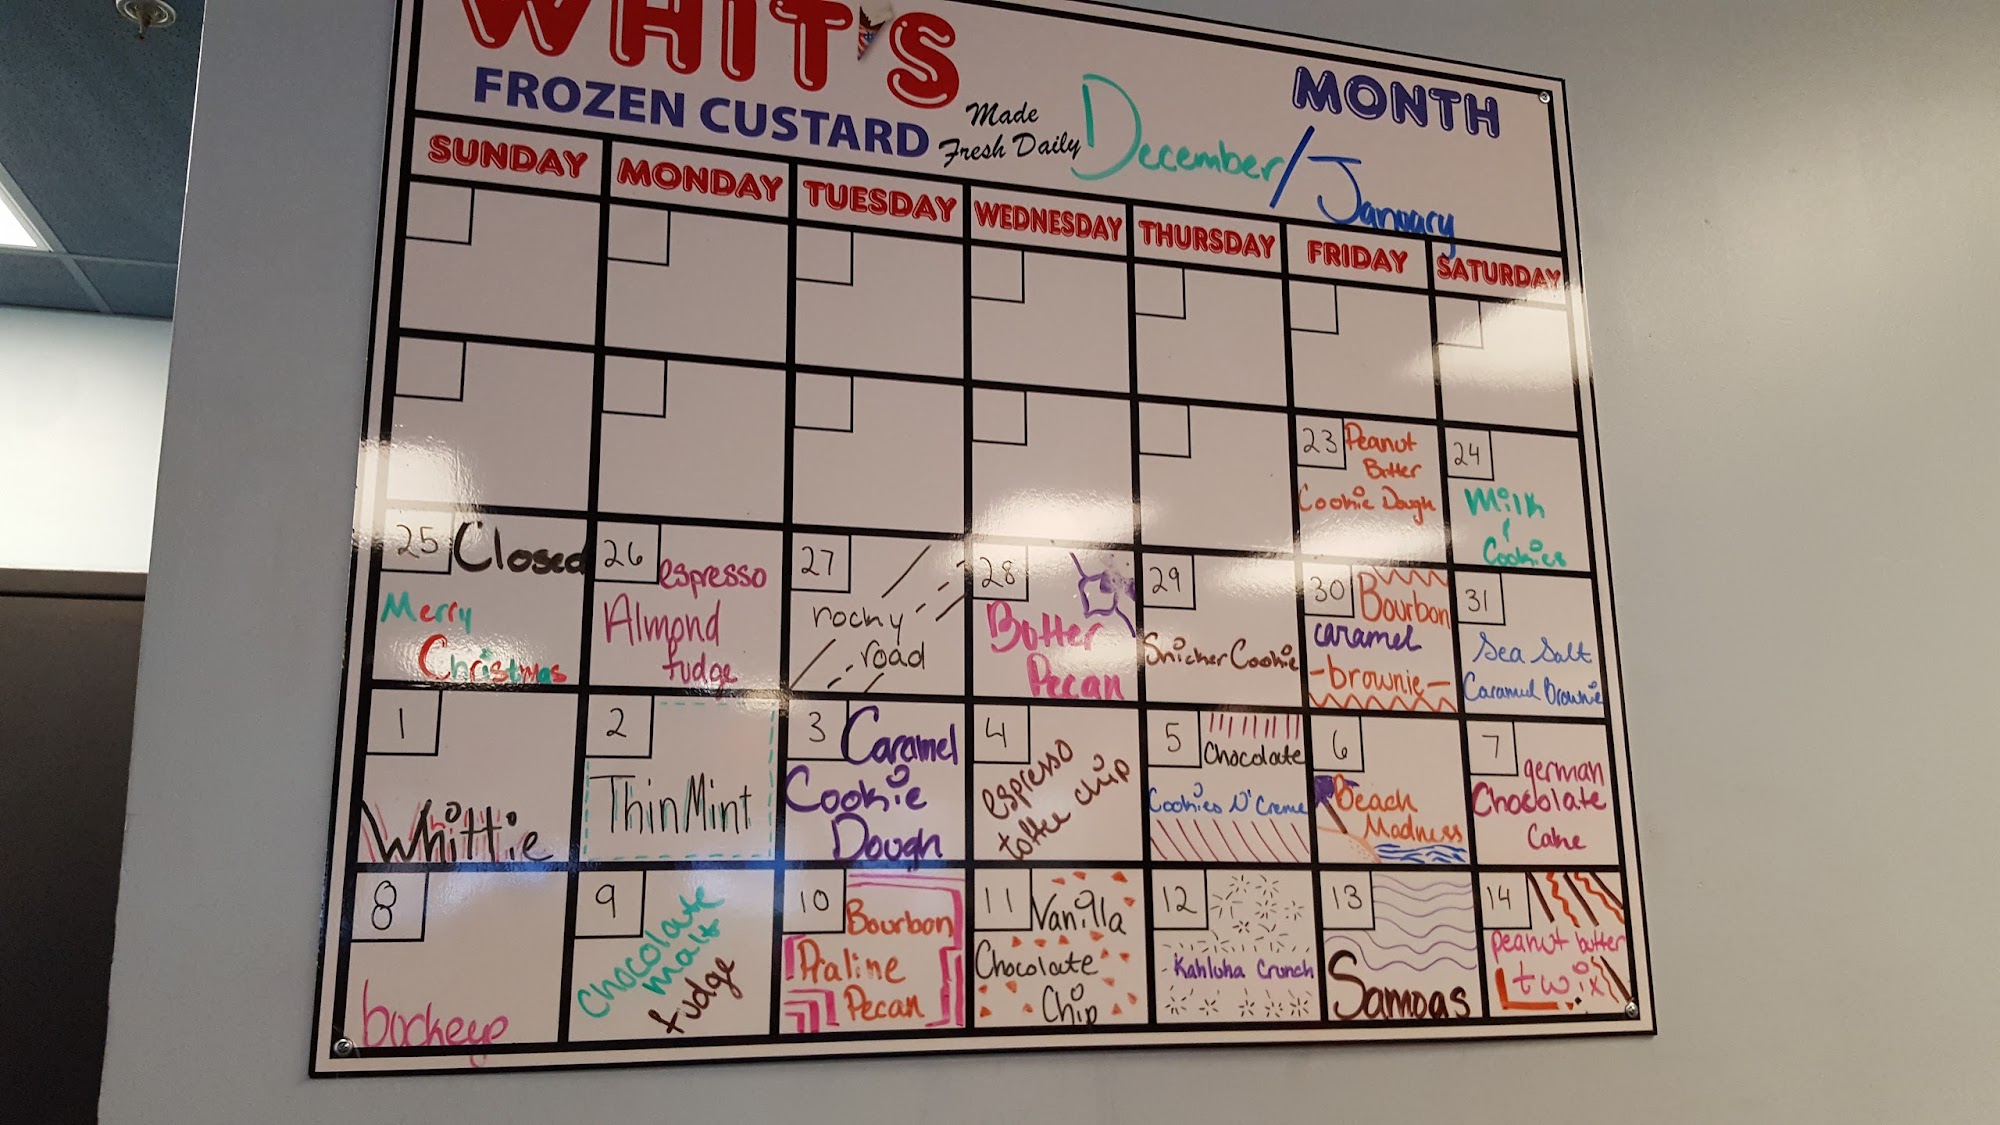 WHIT'S
FROZEN CUSTARD
Made
Fresh Daily
MONTH
December/January
SUNDAY MONDAY TUESDAY WEDNESDAY THURSDAY FRIDAY SATURDAY
23 Peanut
Butter
Cookie Dough
24
Milk
&
Cookies
25 Closed
Merry
Christmas
26 espresso
Almond
fudge
27
rocky
road
28
Butter
Pecan
29
Snicker Cookie
30 Bourbon
caramel
-brownie-
31
Sea Salt
Caramel Brownie
1
Whittie
2
Thin Mint
3 Caramel
Cookie
Dough
4
espresso
toffee chip
5
Chocolate
Cookies N' Creme
6
Beach
Madness
7
german
Chocolate
Cake
8
buckeye
9
Chocolate
malt
fudge
10
Bourbon
Praline
Pecan
11 Vanilla
Chocolate
Chip
12
Kahluha Crunch
13
Samoas
14
peanut butter
twix